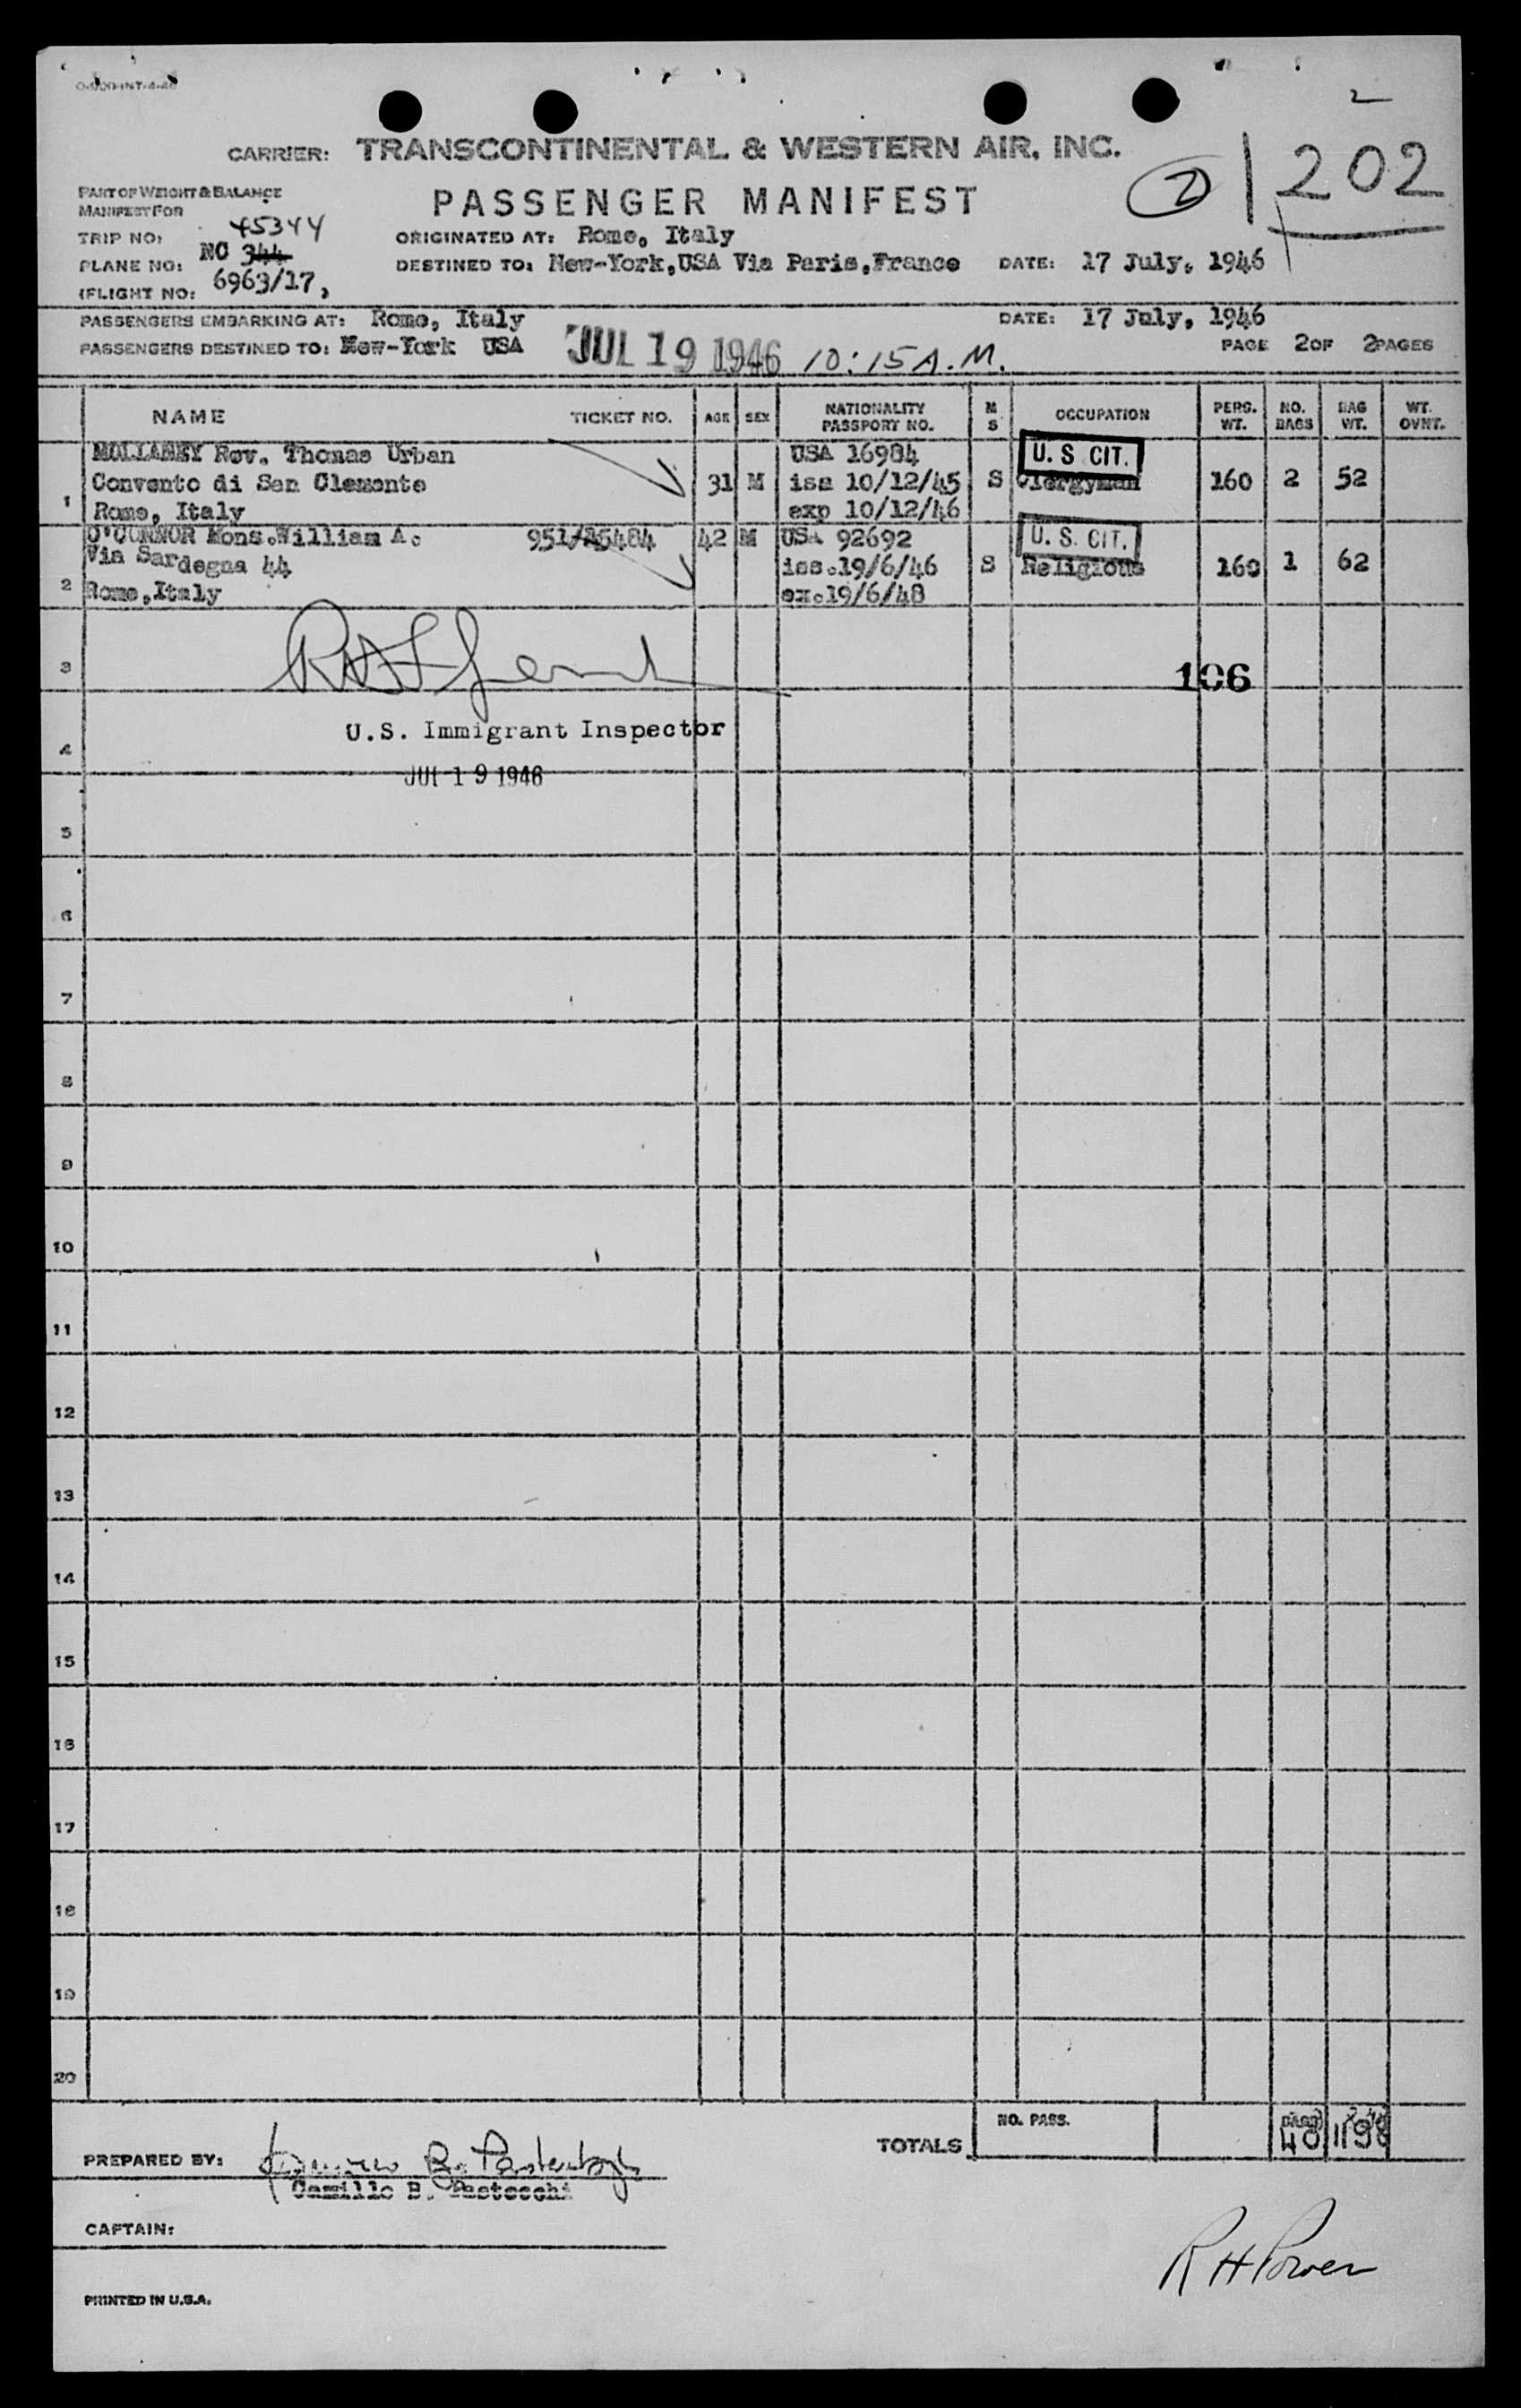 2
CARRIER: TRANSCONTINENTAL & WESTERN AIR, INC.
2 202
PART OF WEIGHT & BALANCE
MANIFEST FOR
PASSENGER MANIFEST
TRIP NO: 45344
ORIGINATED AT: Rome, Italy
PLANE NO: NC 344
DESTINED TO: New-York,USA Via Paris,France DATE: 17 July, 1946
(FLIGHT NO: 6963/17,
PASSENGERS EMBARKING AT: Rome, Italy DATE: 17 July, 1946
PASSENGERS DESTINED TO: New-York USA JUL 19 1946 10:15 A.M. PAGE 2 OF 2 PAGES
NAME TICKET NO. AGE SEX NATIONALITY PASSPORT NO. M S OCCUPATION PERS. WT. NO. BAGS BAG WT. WT. OVHT.
MOLLANEY Rev. Thomas Urban USA 16984 U.S CIT.
Convento di San Clemente 31 M iss 10/12/45 S Clergyman 160 2 52
1 Rome, Italy exp 10/12/46
O'CONNOR Mons.William A. 951/25484 42 M USA 92692 U.S. CIT.
Via Sardegna 44 iss.19/6/46 S Religious 160 1 62
2 Rome,Italy ex.19/6/48
3
106
U.S. Immigrant Inspector
4
JUL 19 1946
5
6
7
8
9
10
11
12
13
14
15
16
17
18
19
20
NO. PASS.
TOTALS 40
PREPARED BY:
Camillo B. Pastecchi
CAPTAIN:
R H Power
PRINTED IN U.S.A.